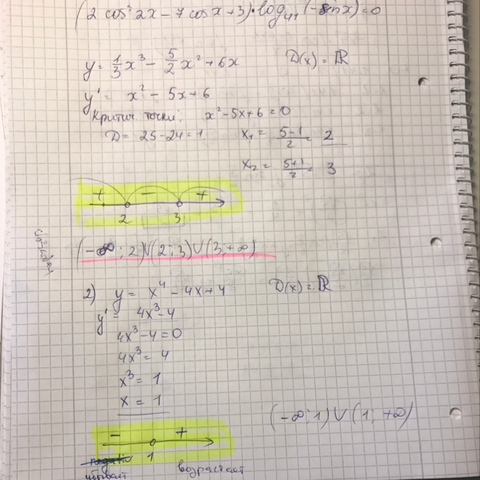 (2 cos² 2x − 7 cos x + 3) · log₄₁ (− sin x) = 0
y = 1/3 x³ − 5/2 x² + 6x    D(x) = ℝ
y' = x² − 5x + 6
Критич. точки. x² − 5x + 6 = 0
D = 25 − 24 = 1    x₁ = (5−1)/2 = 2
x₂ = (5+1)/2 = 3
+ − +
2 3
(−∞; 2) ∪ (2; 3) ∪ (3; +∞)
2) y = x⁴ − 4x + 4    D(x) = ℝ
y' = 4x³ − 4
4x³ − 4 = 0
4x³ = 4
x³ = 1
x = 1
(−∞; 1) ∪ (1; +∞)
− +
1
возрастает